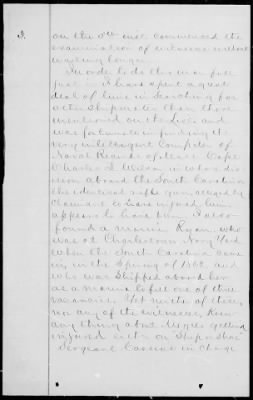 3.
on the 5th inst. commenced the
examination of witnesses without
waiting longer.
In order to do this man full
justice I have spent a great
deal of time in searching for
other Shipmates than those
mentioned on the List and
was fortunate in finding the
very intelligent Compiler of
Naval Records of
Charles L. Wilson in whose
aboard the South Carolina
the identical rifle gun alleged by
claimant to have injured him
appears to have been. I also
found a marine Ryan, who
was at Charlestown Navy Yard
when the South Carolina came
in, in the Spring of 1862, and
who was Shipped aboard her
as a marine to fill one of three
vacancies. Yet neither of these
nor any of the witnesses, knew
any thing about Megee's getting
injured either on Ship or Shore
Sergeant Cassine in charge